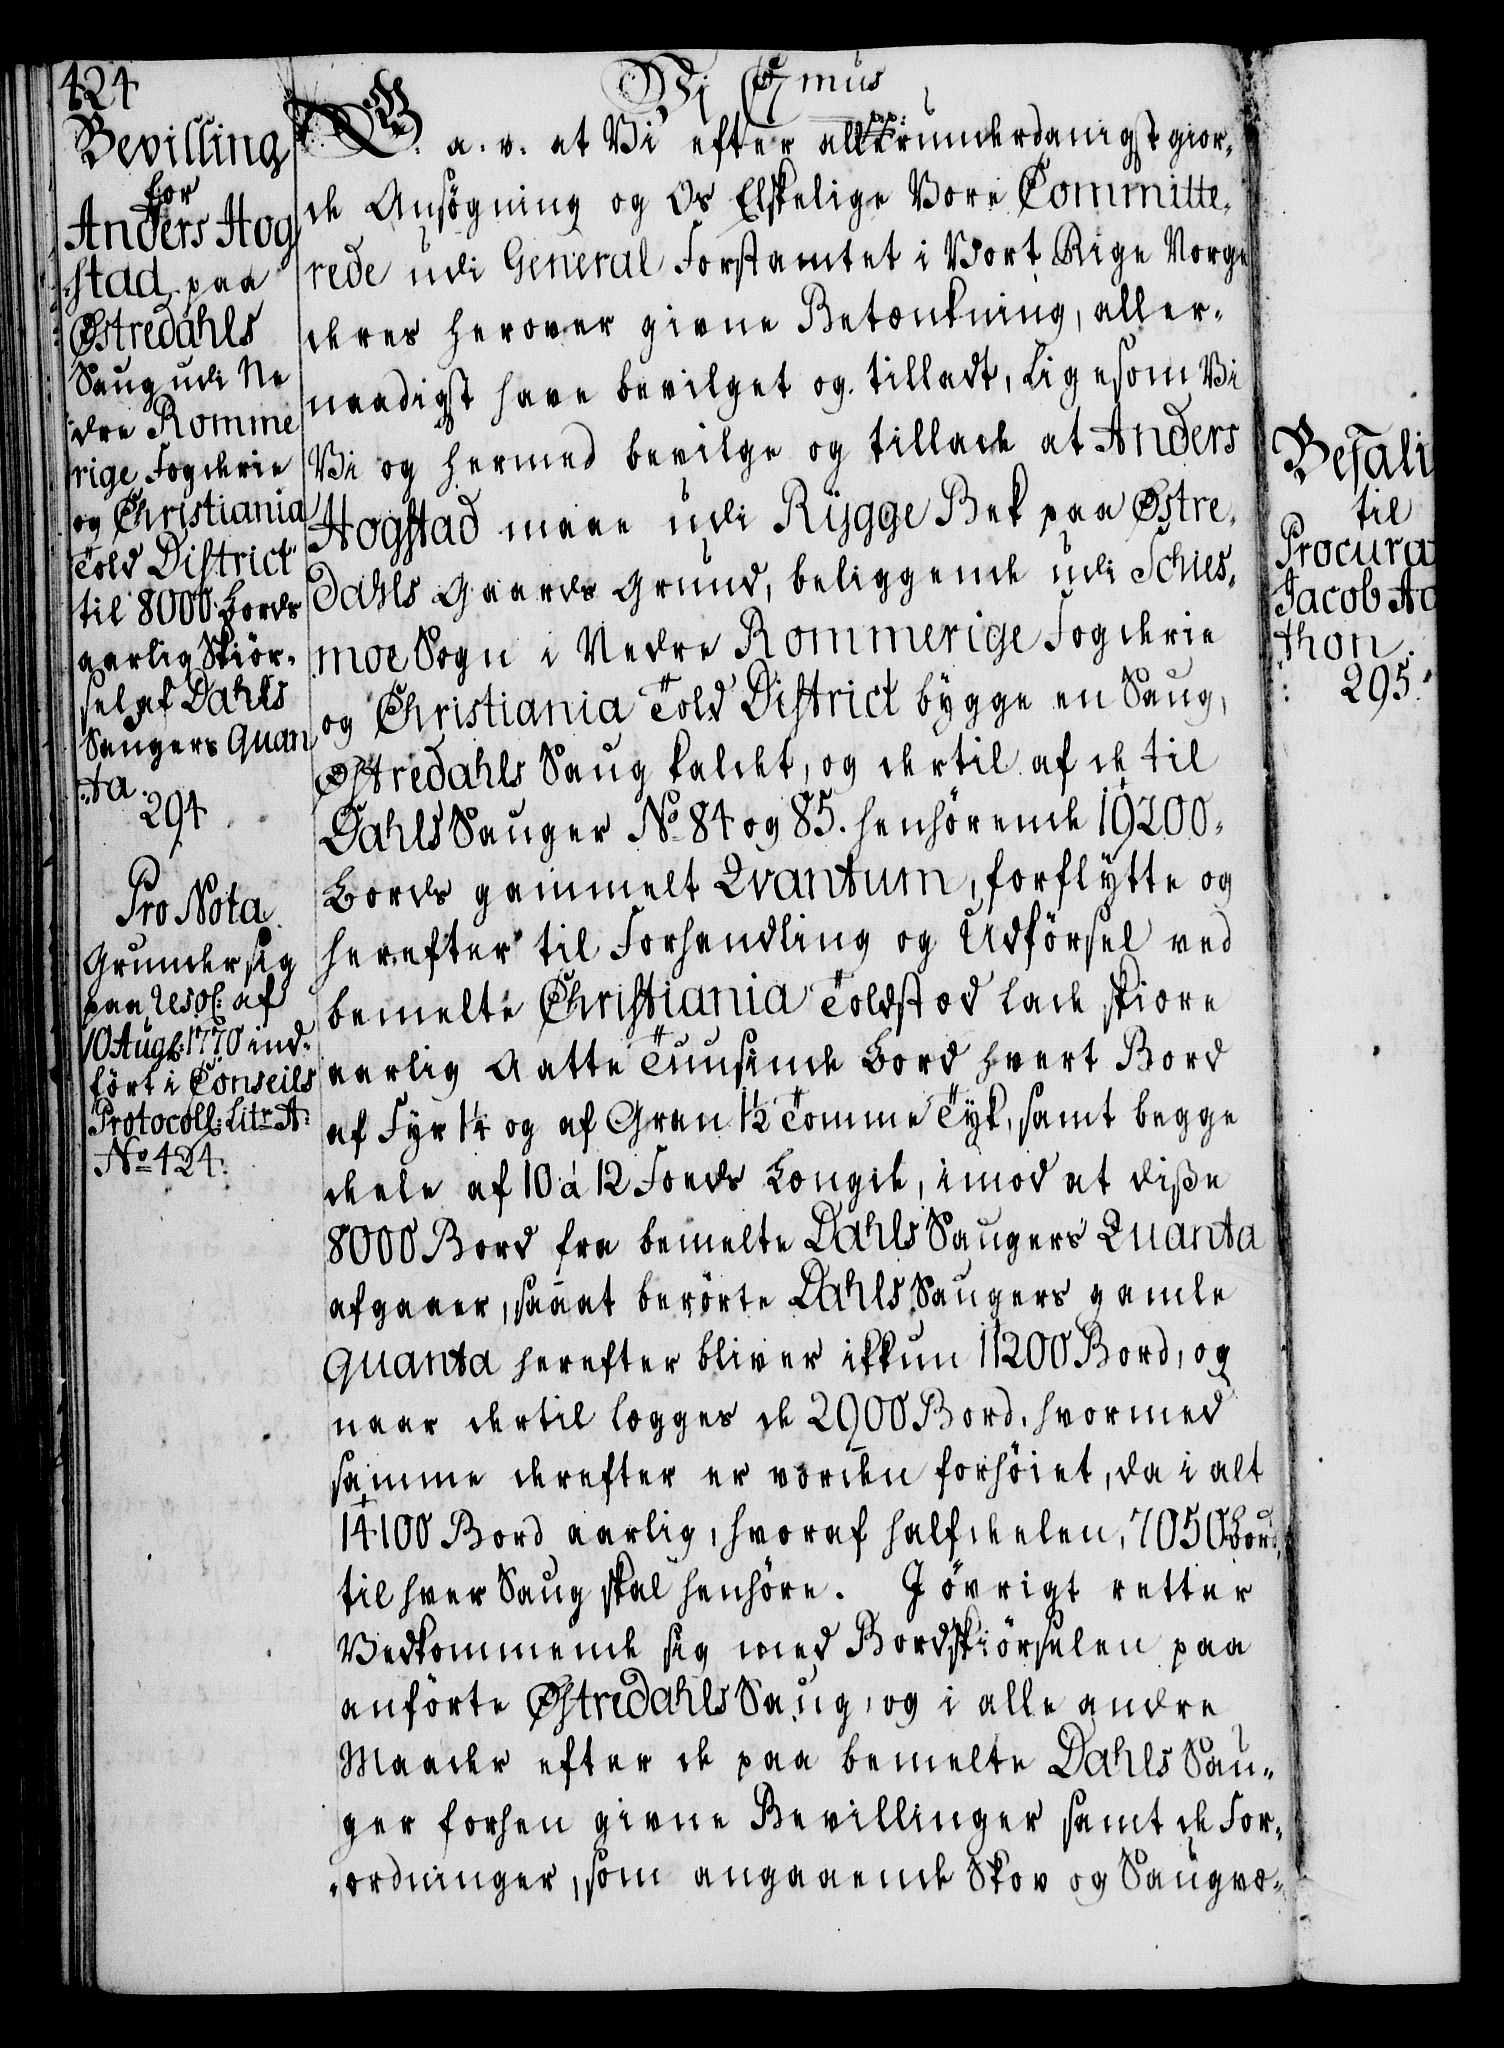 424
Bevilling
for
Anders Hog
stad paa
Østredahls
Saug udi Ne
dre Romme
rige Fogderie
og Christiania
Told District
til 8000 Bords
aarlig Skiør-
sel af Dahls
Saugers Quan
ta.
294
Pro Nota
Grunder sig
paa Resol: af
10 Aug: 1770 ind-
ført i Conseils
Protocoll: Litr A:
No 424.
Vi C7mus
p.p:
G. a. v. at Vi efter allerunderdanigst gior-
de Ansøgning og Os Elskelige Vore Committe-
rede udi General Forstamtet i Vort Rige Norge
deres herover givne Betænkning, aller-
naadigst have bevilget og tilladt, ligesom Vi
Vi og hermed bevilge og tillade at Anders
Hogstad maae udi Rygge Bek paa Østre-
dahls Gaards Grund, beliggende udi Schies-
moe Sogn i Nedre Rommerige Fogderie
og Christiania Told District bygge en Saug,
Østredahls Saug kaldet, og dertil af de til
Dahls Sauger No 84 og 85. henhørende 19200.
Bords gammelt Qvantum, forflytte og
herefter til Forhandling og Udførsel ved
bemelte Christiania Toldstæd lade skiære
aarlig Aatte Tuusinde Bord hvert Bord
af Fyr 1¼ og af Gran 1½ Tomme Tyk, samt begge
dele af 10 à 12 Foeds Længde, imod at diße
8000 Bord fra bemelte Dahls Saugers Quanta
afgaaer, saaat berørte Dahls Saugers gamle
Quanta herefter bliver ikkun 11200 Bord, og
naar dertil lægges de 2900 Bord, hvormed
samme derefter er vorden forhøiet, da i alt
14100 Bord aarlig, hvoraf halfdelen, 7050 Bord,
til hver Saug skal henhøre. I øvrigt retter
Vedkommende sig med Bordskiørselen paa
anførte Østredahls Saug, og i alle andre
Maader efter de paa bemelte Dahls Sau-
ger forhen givne Bevillinger samt de For-
ordninger, som angaaende Skov og Saugvæ-
Befali
til
Procura
Jacob Aa
thon.
295.